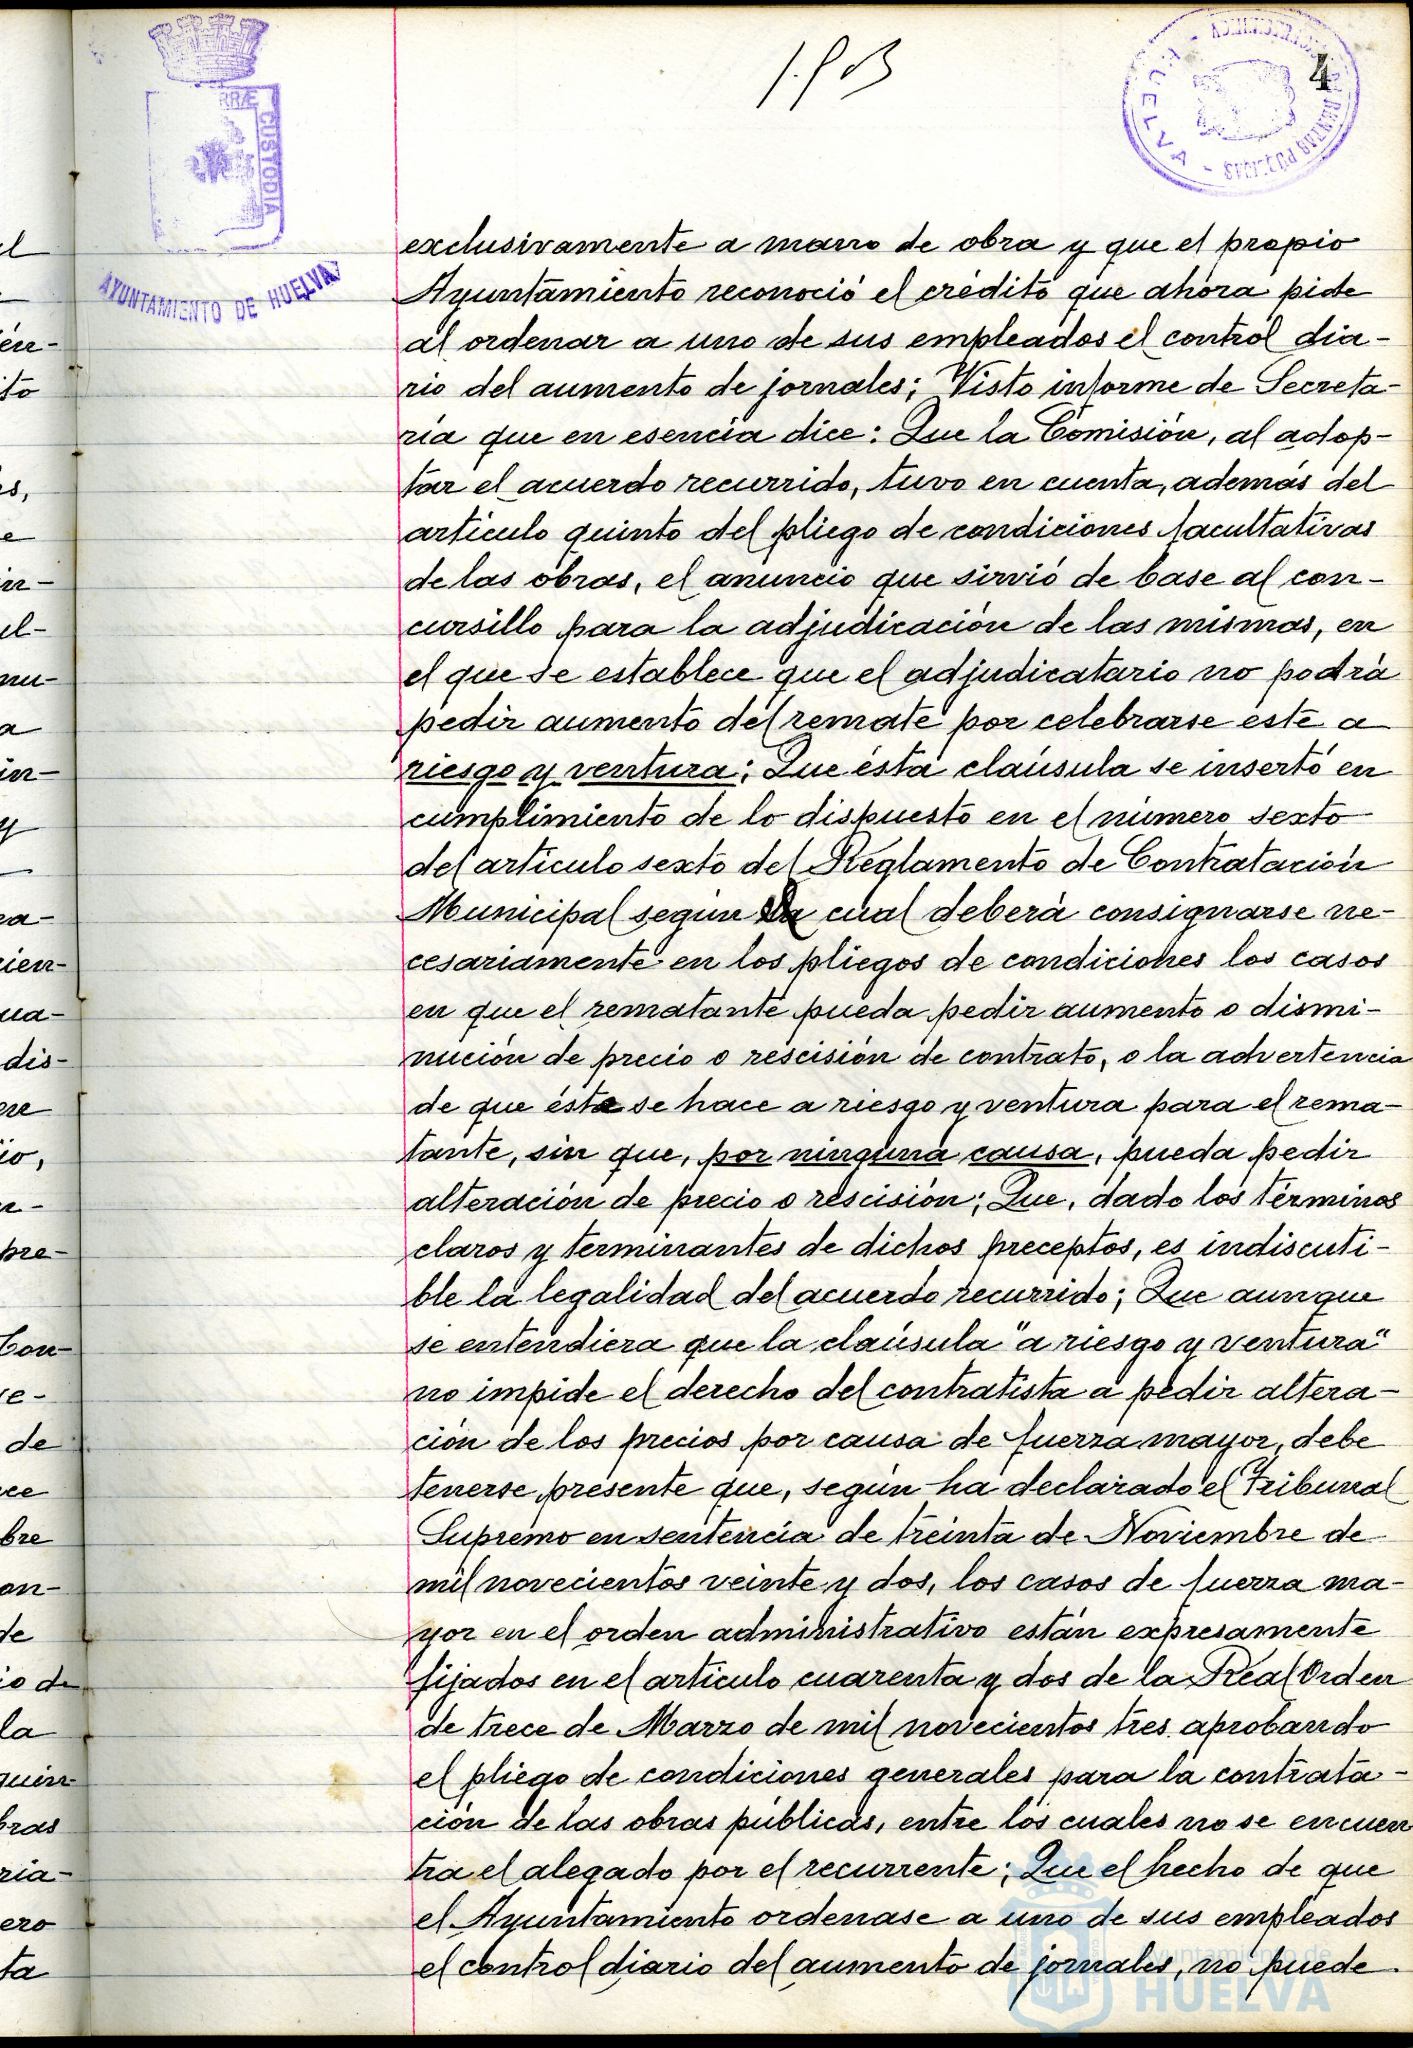 4
RRÆ CUSTODIA
AYUNTAMIENTO DE HUELVA
HUELVA
exclusivamente a marro de obra y que el propio
Ayuntamiento reconoció el crédito que ahora pide
al ordenar a uno de sus empleados el control dia-
rio del aumento de jornales; Visto informe de Secreta-
ría que en esencia dice: Que la Comisión, al adop-
tar el acuerdo recurrido, tuvo en cuenta, además del
artículo quinto del pliego de condiciones facultativas
de las obras, el anuncio que sirvió de base al con-
cursillo para la adjudicación de las mismas, en
el que se establece que el adjudicatario no podrá
pedir aumento del remate por celebrarse éste a
riesgo y ventura; Que ésta claúsula se insertó en
cumplimiento de lo dispuesto en el número sexto
del artículo sexto del Reglamento de Contratación
Municipal según la cual deberá consignarse ne-
cesariamente en los pliegos de condiciones los casos
en que el rematante pueda pedir aumento o dismi-
nución de precio o rescisión de contrato, o la advertencia
de que éste se hace a riesgo y ventura para el rema-
tante, sin que, por ninguna causa, pueda pedir
alteración de precio o rescisión; Que, dado los términos
claros y terminantes de dichos preceptos, es indiscuti-
ble la legalidad del acuerdo recurrido; Que aunque
se entendiera que la claúsula "a riesgo y ventura"
no impide el derecho del contratista a pedir altera-
ción de los precios por causa de fuerza mayor, debe
tenerse presente que, según ha declarado el Tribunal
Supremo en sentencia de treinta de Noviembre de
mil novecientos veinte y dos, los casos de fuerza ma-
yor en el orden administrativo están expresamente
fijados en el artículo cuarenta y dos de la Real Orden
de trece de Marzo de mil novecientos tres aprobando
el pliego de condiciones generales para la contrata-
ción de las obras públicas, entre los cuales no se encuen
tra el alegado por el recurrente; Que el hecho de que
el Ayuntamiento ordenase a uno de sus empleados
el control diario del aumento de jornales, no puede
Ayuntamiento de
HUELVA